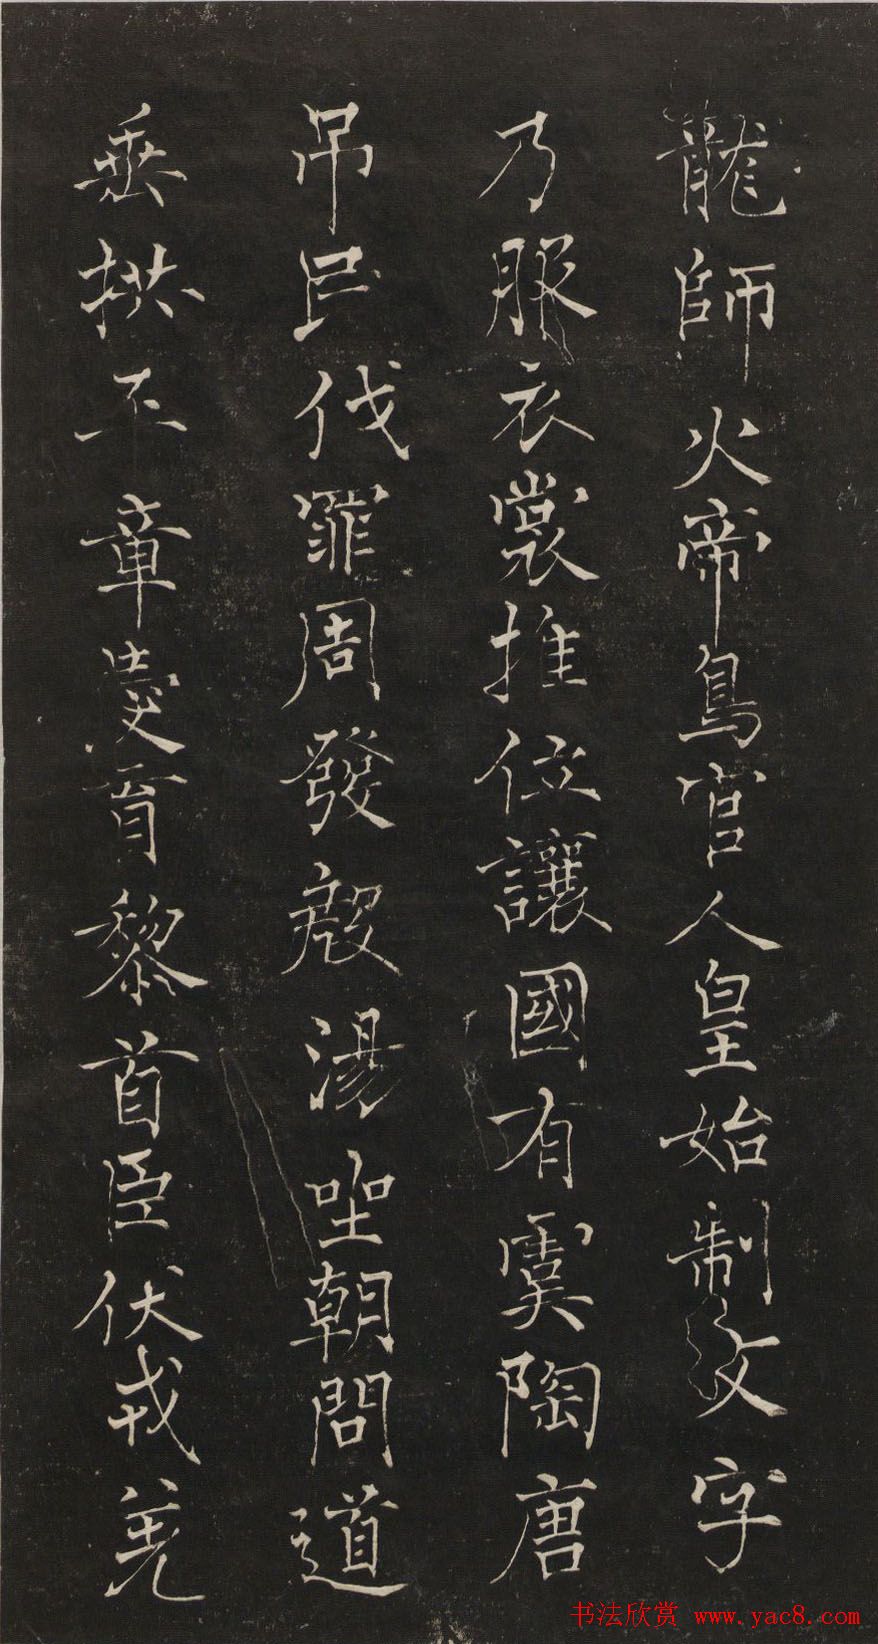 龍師火帝鳥官人皇始制文字
乃服衣裳推位讓國有虞陶唐
吊民伐罪周發殷湯坐朝問道
垂拱平章愛育黎首臣伏戎羌
书法欣赏 www.yac8.com